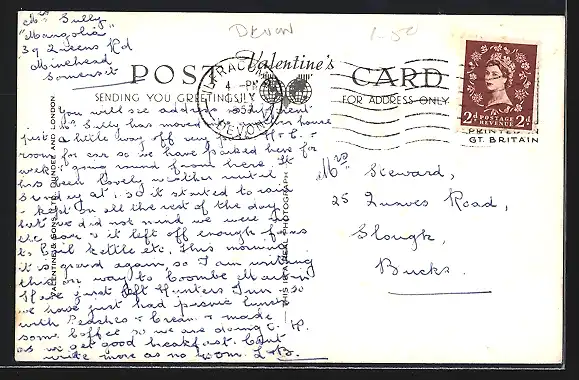 Mrs Sully
"Mangolia"
39 Queens Rd
Minehead
Somerset
DEVON
1-50
POST CARD
Valentine's
SENDING YOU GREETINGS
FOR ADDRESS ONLY
ILFRACOMBE
4 - PM
JLY
DEVON
2d POSTAGE REVENUE 2d
PRINTED IN
GT. BRITAIN
VALENTINE & SONS LTD. DUNDEE AND LONDON
THIS IS A REAL PHOTOGRAPH
You will see address is different
Mrs Sully has moved house
just a little way off
room for car so we have parked here for
week & going round from here. It
has been lovely weather until
Sunday at so it started to rain
& kept on all the rest of the day
but we did not mind we were in
the car & it left off enough for us
to boil kettle etc. This morning
it is grand again, so I am writing
this on way to Combe Martin
Have just left Hunters Inn so
we have just had picnic lunch
with Peaches & Cream & made
some Coffee so we are doing O.K.
as we get good breakfast. Can't
write more as no room. L.B.
Mrs Steward,
25 Road,
Slough,
Bucks.